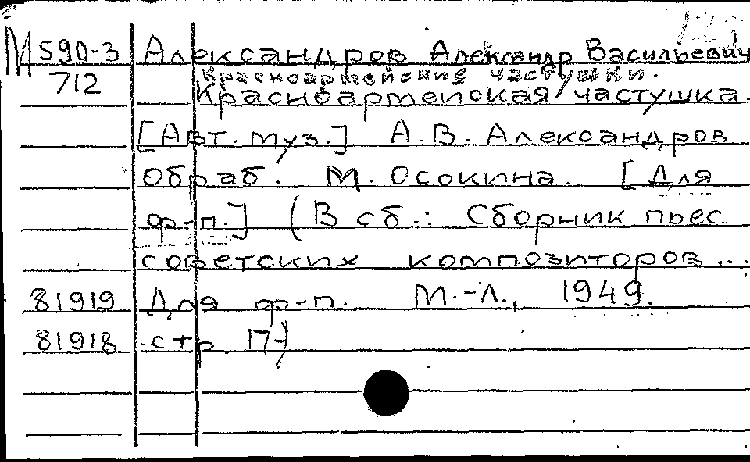 М 590-3 Александров Александр Васильевич
Красноармейские частушки.
712 Красноармейская частушка.
[Авт. муз.] А.В. Александров
обраб. М. Осокина. [Для
ф-п.] (В сб.: Сборник пьес
советских композиторов...
81919 Для ф-п. М.-Л., 1949.
81918 стр.